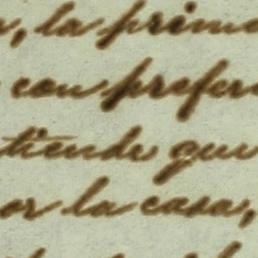 , la prime
con prefer
tiende que
or la casa,